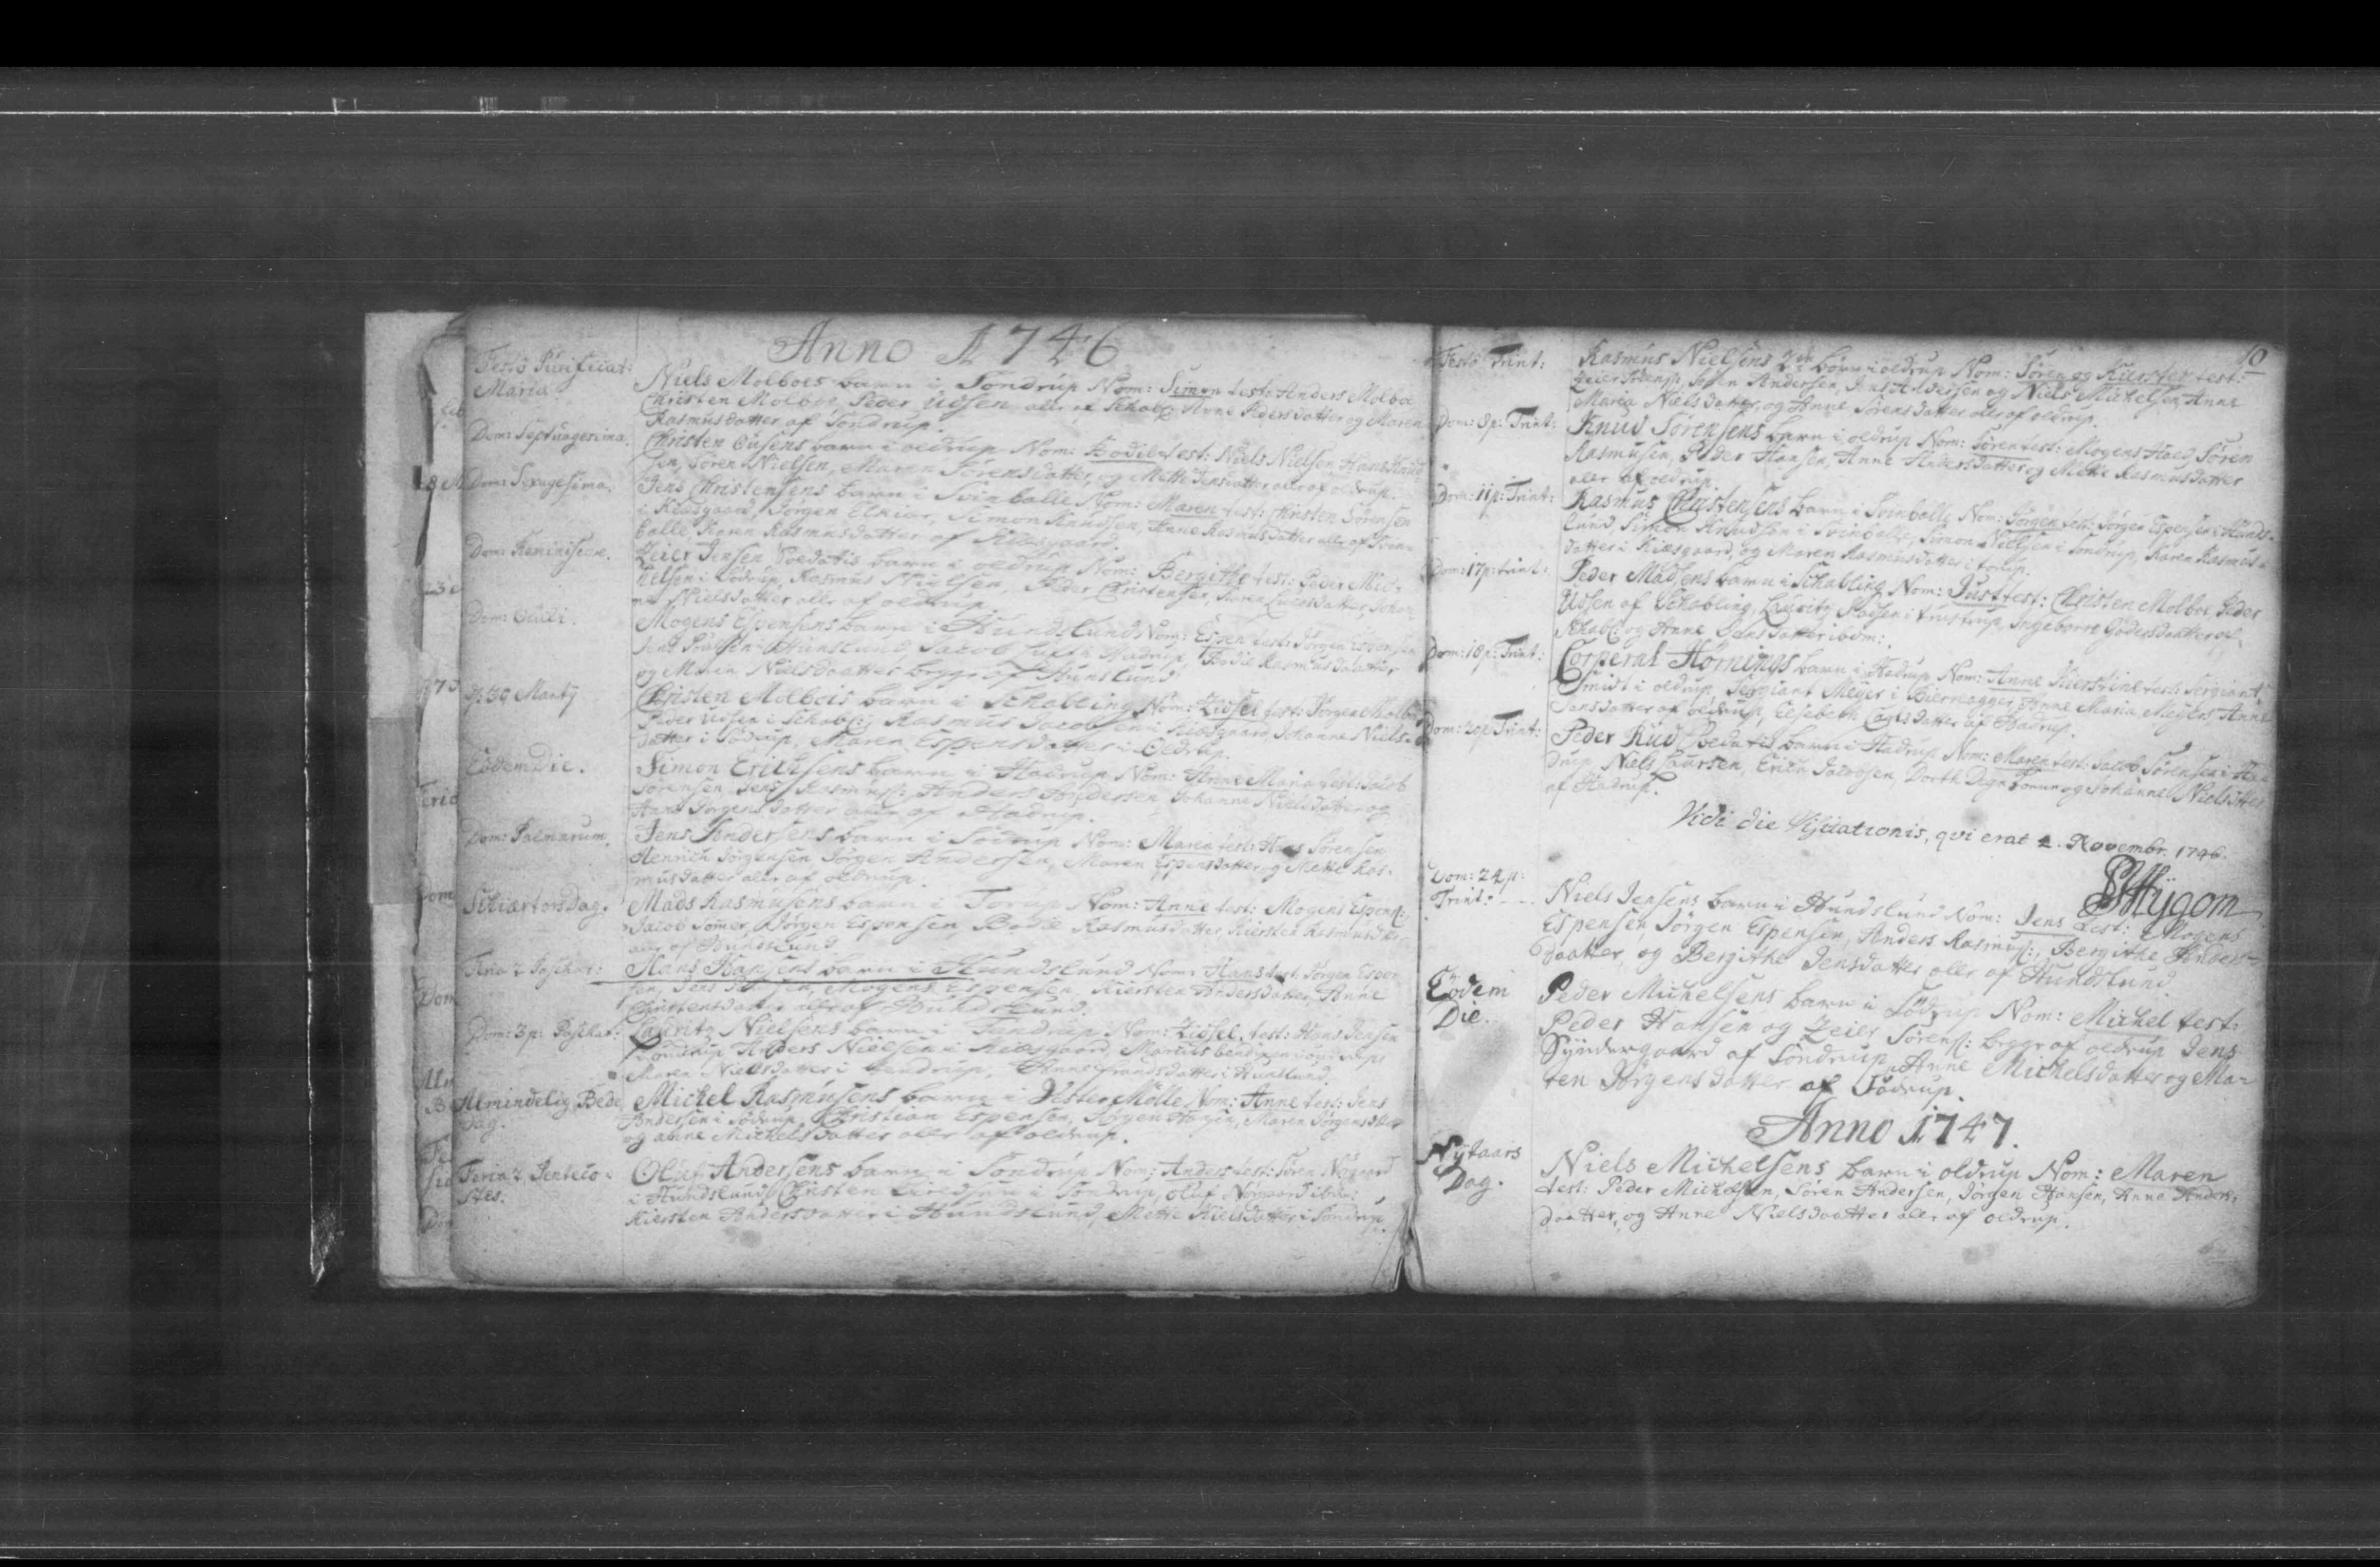 Anno 1746
Festo Purificat: Mariæ
Niels Molboes barn i Sondrup Nom: Simon test: Anders Molboe
Christen Molboe, Peder Udsen aller af Schabl: Anne Pedersdatter og Maren
Rasmusdatter af Sondrup.
Dom: Septuagesima.
Christen Ousens barn i oldrup Nom: Bodil test: Niels Nielsen, Hans Knud-
sen, Søren Nielsen, Maren Sørensdatter, og Mette Jensdatter aller af oldrup.
Dom: Sexagesima.
Jens Christensens barn i Svinballe Nom: Maren test: Christen Sørensen
i Kiæsgaard, Jørgen Elkiær, Simon Knudsen, Anne Rasmusdatter alle af Svin-
balle, Karen Rasmusdatter af Kiæsgaard.
Dom: Reminiscere.
Zeier Jensen Poedatis barn i oldrup Nom: Bergitthe test: Peder Mic-
kelsen i Södrup, Rasmus Nielsen, Peder Christensen, Karen Lucasdatter, Johan-
ne Nielsdatter alle af oldrup.
Dom: Oculi.
Mogens Espensens barn i Hundslund Nom: Espen test: Jørgen Espensen
Jens Poulsen i Hunslund, Jacob i Hadrup, Bodil Rasmusdaatter
og Maria Nielsdaatter begge af Hunslund
d: 30 Martij
Christen Molbois barn i Schabling Nom: Zidsel test: Jørgen Molboe
Peder Udsen i Schabl: Rasmus Jacobsen i Kiæsgaard, Johanne Niels-
datter i Södrup, Maren Espensdatter i Oldrup.
Eodem Die.
Simon Erichsens barn i Hadrup Nom: Anne Maria test: Jacob
Sørensen, Jens Rasmus: Anders Pedersen, Johanne Nielsdatter og
Anne Jørgensdatter aller af Hadrup.
Dom: Palmarum.
Jens Andersens barn i Södrup Nom: Maren test: Hans Sørensen
Henrich Jörgensen, Jørgen Andersen, Maren Espensdatter og Mette Ras-
musdatter aller af oldrup.
Schiærtorsdag.
Mads Rasmusens barn i Torup Nom: Anne test: Mogens Espens:
Jacob Somer, Jörgen Espensen, Bodil Rasmusdatter, Kiersten Rasmusd:
aller af Hundslund
Feria 2 Paschat:
Hans Hansens barn i Hundslund Nom: Hans test: Jørgen Espen-
sen, Jens Mogens Espensen, Kiersten Andersdatter, Anne
Christensdatter alle af Hundslund.
Dom: 3 p: Paschat:
Lauritz Nielsens barn i Tendrup Nom: Zidsel. test: Hans Jensen
i Sondrup Anders Nielsen i Kiæsgaard,
Maren Nielsdatter i Tendrup, Anne Frandsdatter i Hunslund.
Almindelig Bede
Dag.
Michel Rasmusens barn i Vester Mölle Nom: Anne test: Jens
Andersen i Södrup, Christian Espensen, Jörgen Hansen, Maren Jørgensdatter
og anne Michelsdatter aller af oldrup.
Feria 2 Penteco-
stes.
Oluf Andersens barn i Sondrup Nom: Anders test: Søren Nörgaard
i Hundslund, Christen i Sondrup, Oluf Nörgaard ibdm:
Kiersten Andersdatter i Hundslund, Mette Nielsdatter i Sondrup.
10
Festo Trint:
Rasmus Nielsens 2de börn i oldrup Nom: Sören og Kiersten test:
Zeier Sören Andersen, Jens Andersen og Niels Michelsen, Anne
Maria Nielsdatter, og Anne Sörensdatter aller af oldrup.
Dom: 8 p: Trint:
Knud Sörensens barn i oldrup Nom: Sören test: Mogens Sören
Rasmusen, Peder Hansen, Anne Andersdatter og Mette Rasmusdatter
aller af oldrup.
Dom: 11 p: Trint:
Rasmus Christensens barn i Svinballe Nom: Jörgen test: Jörgen Espensen i Hunds-
lund, Simon Knudsen i Svinballe, Simon Nielsen i Sondrup, Karen Rasmus-
datter i Kiæsgaard, og Maren Rasmusdatter i torup.
Dom: 17 p: trint:
Peder Madsens barn i Schabling Nom: Just test: Christen Molboe Peder
Udsen af Schabling, Lauritz Madsen i trustrup, Ingeborre af
Schabl: og Anne Jensdatter ibdm:
Dom: 18 p: Trint:
Corperal Hörnings barn i Hadrup Nom: Anne Kierstine test: Sergiant
Smidt i oldrup, Sergiant Meyer i Bierreagger, Anne Maria Meyers, Anne
Jensdatter af oldrup, Elsebeth af Hadrup.
Dom: 20 p: Trint:
Peder Rüd Poedatis barn i Hadrup Nom: Maren test: Jacob Sörensen i Ha-
drup Niels Laursen, Erich Jacobsen, Dorth og Johanne Nielsdatter
af Hadrup.
Vidi die Visitationis, qvi erat 2. Novembr. 1746.
Hygom
Dom: 24 p:
Trint:
Niels Jensens barn i Hundslund Nom: Jens test: Mogens
Espensen Jörgen Espensen, Anders Rasmus:, Bergithe Anders-
daatter og Bergithe Jensdatter aller af Hundslund
Eodem
Die.
Peder Michelsens barn i Södrup Nom: Michel test:
Peder Hansen og Zeier Sörens: begge af oldrup Jens
Syndergaard af Sondrup Anne Michelsdatter og Ma-
ren Jörgensdatter af Södrup.
Anno 1747.
Nytaars
Dag.
Niels Michelsens barn i oldrup Nom: Maren
test: Peder Michelsen, Sören Andersen, Jörgen Hansen, Anne Anders-
daatter, og Anne Nielsdaatter aller af oldrup.